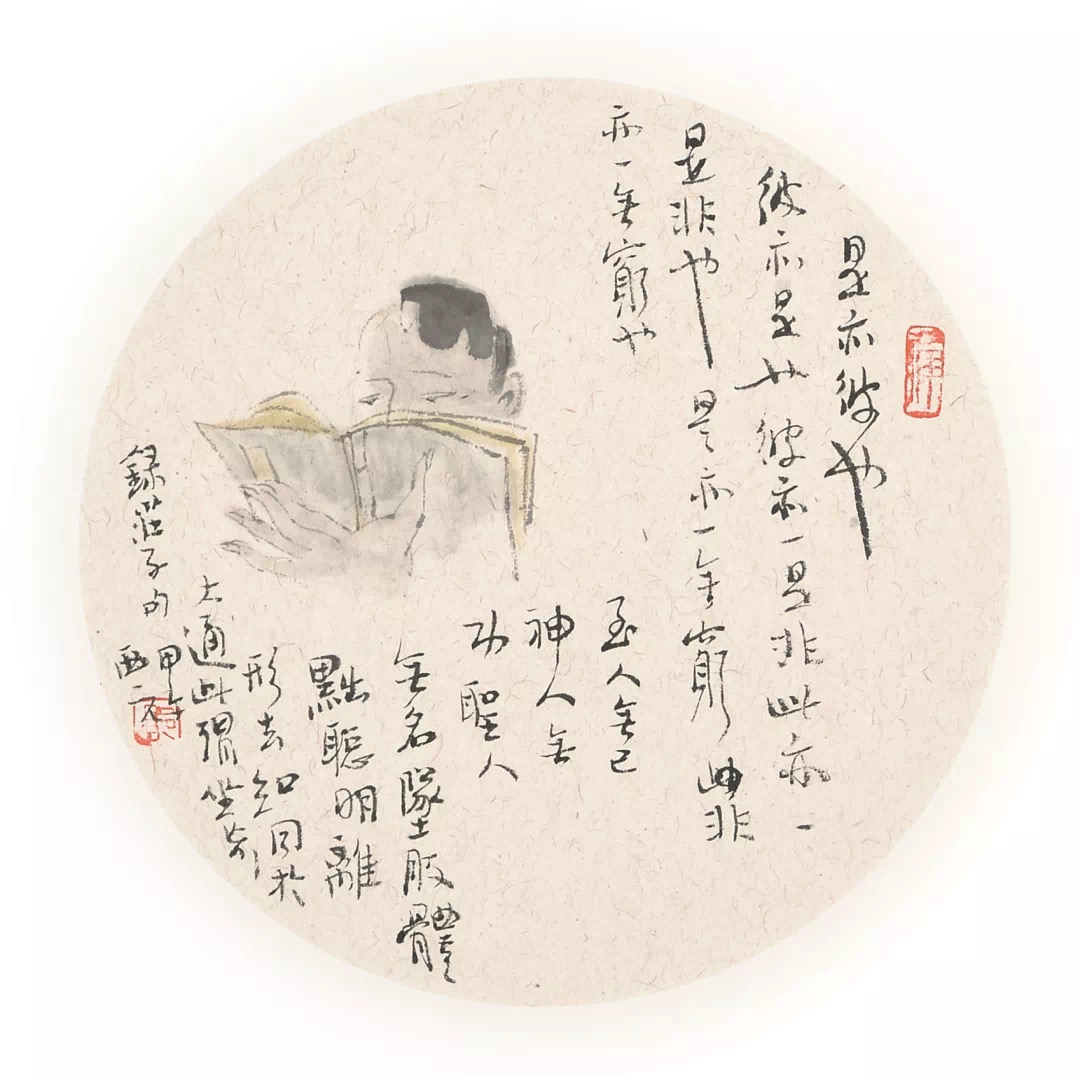 是亦彼也
彼亦是也彼亦一是非此亦一
是非也是亦一無窮此非
亦一無窮也
至人無己
神人無
功聖人
無名墜肢體
黜聰明離
形去知同於
大通此謂坐忘
錄莊子句
甲午